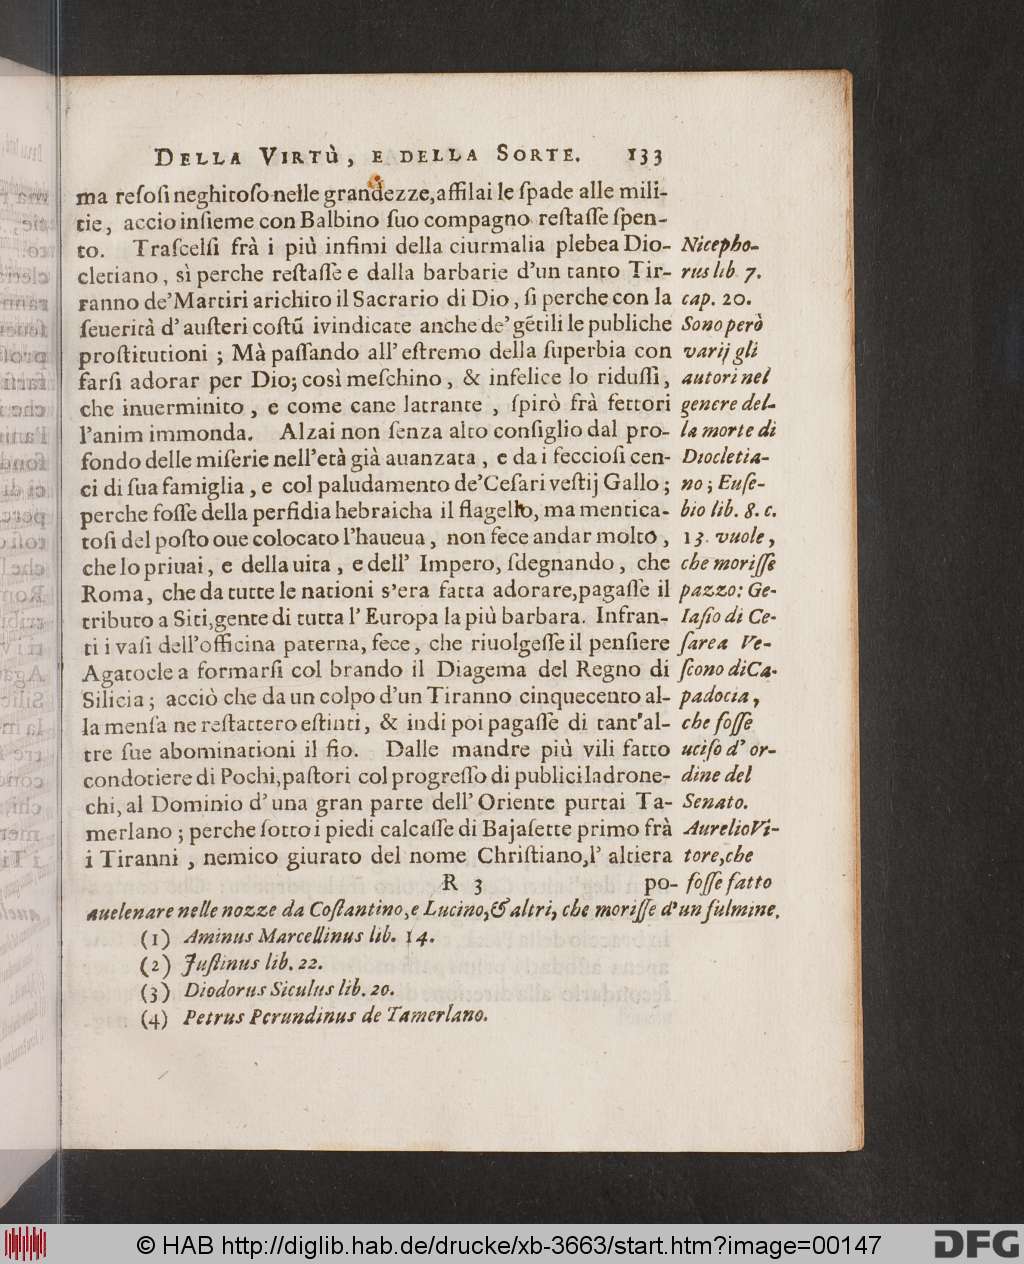 DELLA VIRTÙ, E DELLA SORTE. 133
ma reſoſi neghitoſo nelle grandezze, affilai le ſpade alle mili-
tie, accio inſieme con Balbino ſuo compagno reſtaſſe ſpen-
to. Traſcelſi frà i più infimi della ciurmalia plebea Dio-
cletiano, sì perche reſtaſſe e dalla barbarie d'un tanto Tir-
ranno de' Martiri arichito il Sacrario di Dio, ſi perche con la
ſeuerità d' auſteri coſtũ ivindicate anche de' gẽtili le publiche
proſtitutioni; Mà paſſando all' eſtremo della ſuperbia con
farſi adorar per Dio; così meſchino, & infelice lo riduſſi,
che inuerminito, e come cane latrante, ſpirò frà fettori
l'anim immonda. Alzai non ſenza alto conſiglio dal pro-
fondo delle miſerie nell'età già auanzata, e da i fecciosi cen-
ci di ſua famiglia, e col paludamento de' Ceſari veſtij Gallo;
perche foſſe della perfidia hebraicha il flagello, ma mentica-
toſi del poſto oue colocato l'haueua, non fece andar molto,
che lo priuai, e della uita, e dell' Impero, ſdegnando, che
Roma, che da tutte le nationi s'era fatta adorare, pagaſſe il
tributo a Siti, gente di tutta l' Europa la più barbara. Infran-
ti i vaſi dell'officina paterna, fece, che riuolgeſſe il penſiere
Agatocle a formarſi col brando il Diagema del Regno di
Silicia; acciò che da un colpo d'un Tiranno cinquecento al-
la menſa ne reſtattero eſtinti, & indi poi pagaſſe di tant'al-
tre ſue abominationi il fio. Dalle mandre più vili fatto
condotiere di Pochi, paſtori col progreſſo di publici ladrone-
chi, al Dominio d' una gran parte dell' Oriente purtai Ta-
merlano; perche ſotto i piedi calcaſſe di Bajaſette primo frà
i Tiranni, nemico giurato del nome Chriſtiano, l' altiera
R 3 po-
Nicepho-
rus lib. 7.
cap. 20.
Sono però
varij gli
autori nel
genere del-
la morte di
Diocletia-
no; Euſe-
bio lib. 8. c.
13. vuole,
che moriſſe
pazzo: Ge-
laſio di Ce-
ſarea Ve-
ſcono di Ca-
padocia,
che foſſe
uciſo d' or-
dine del
Senato.
Aurelio Vi-
tore, che
foſſe fatto
auelenare nelle nozze da Coſtantino, e Lucino, & altri, che moriſſe d'un fulmine.
(1) Aminus Marcellinus lib. 14.
(2) Juſtinus lib. 22.
(3) Diodorus Siculus lib. 20.
(4) Petrus Perundinus de Tamerlano.
© HAB http://diglib.hab.de/drucke/xb-3663/start.htm?image=00147
DFG